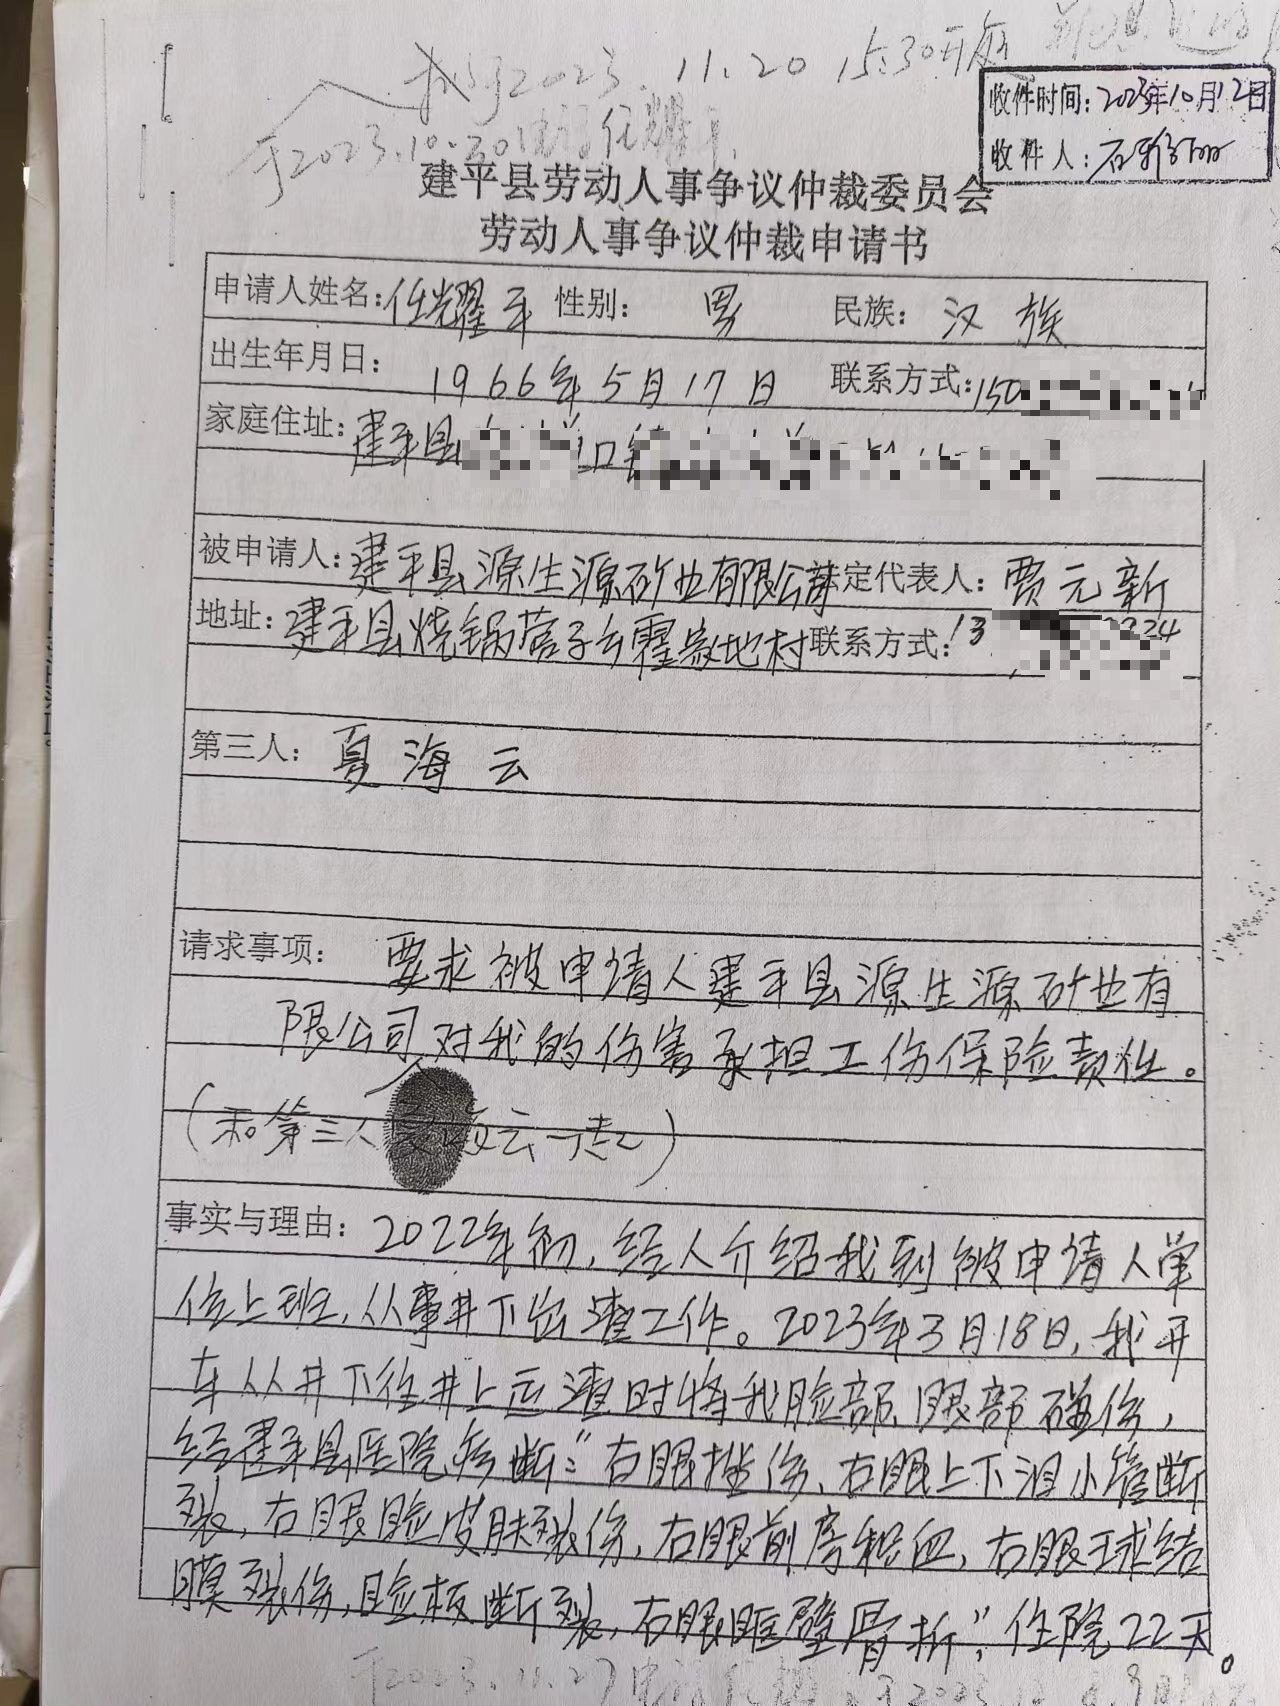 拟于2023.11.20 15:30开庭
于2023.10.30电话任耀平
收件时间:2023年10月12日
收件人:
建平县劳动人事争议仲裁委员会
劳动人事争议仲裁申请书
申请人姓名:任耀平 性别: 男 民族: 汉族
出生年月日: 1966年5月17日 联系方式:150
家庭住址:建平县
被申请人:建平县源生源矿业有限公司 法定代表人:贾元新
地址:建平县烧锅营子乡霍家地村 联系方式:13 2224
第三人: 夏海云
请求事项: 要求被申请人建平县源生源矿业有
限公司对我的伤害承担工伤保险责任。
(和第三人夏海云一起)
事实与理由: 2022年初,经人介绍我到被申请人单
位上班,从事井下出渣工作。2023年3月18日,我开
车从井下往井上运渣时将我脸部、眼部碰伤,
经建平县医院诊断:"右眼挫伤、右眼上下泪小管断
裂,右眼睑皮肤裂伤,右眼前房积血,右眼球结
膜裂伤,睑板断裂,右眼眶壁骨折",住院22天。
于2023.11.27电话